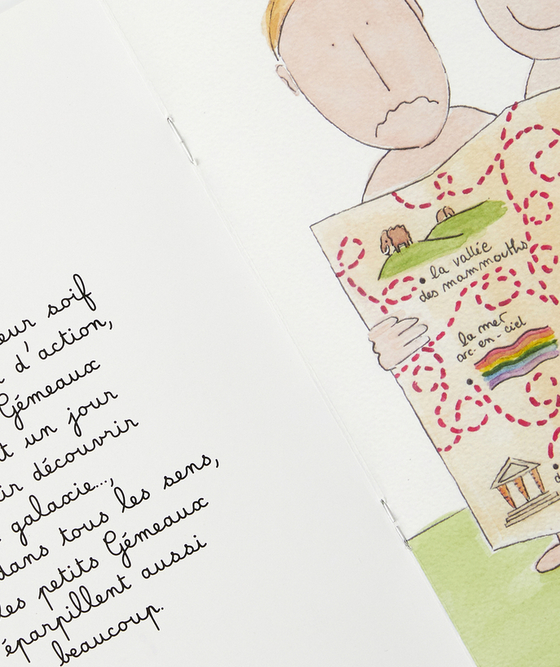 soif
d'action,
Gémeaux
un jour
découvrir
galaxie...,
dans tous les sens,
les petits Gémeaux
éparpillent aussi
beaucoup.
• la vallée
des mammouths
la mer
arc-en-ciel